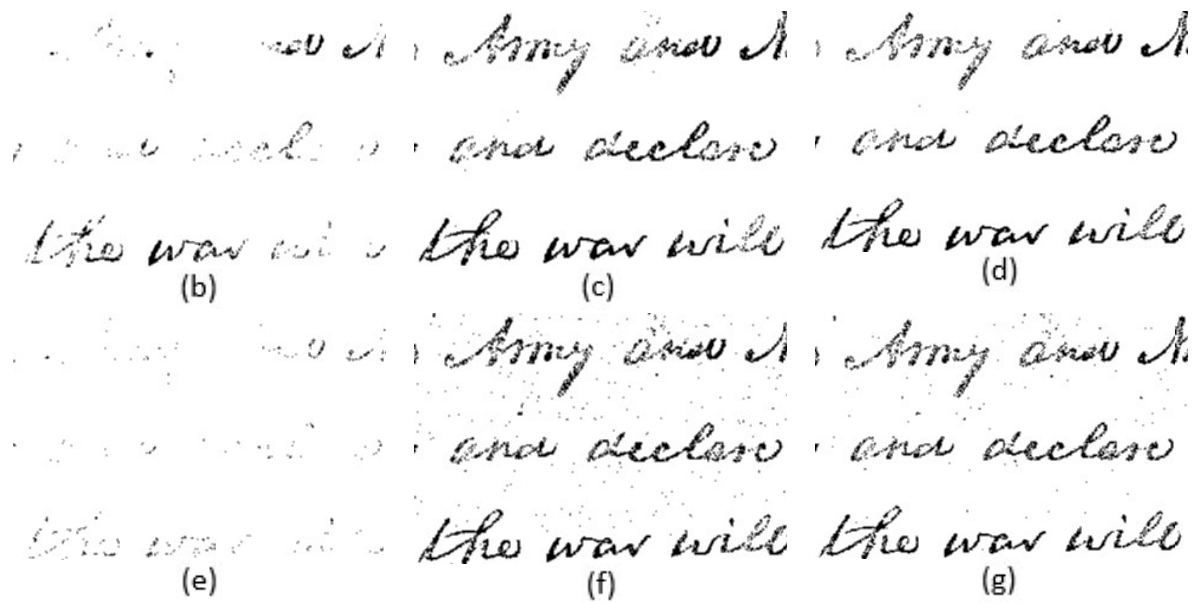 Army and N
and declare
the war will
(b)
Army and N
and declare
the war will
(c)
Army and N
and declare
the war will
(d)
the war
(e)
Army and N
and declare
the war will
(f)
Army and N
and declare
the war will
(g)